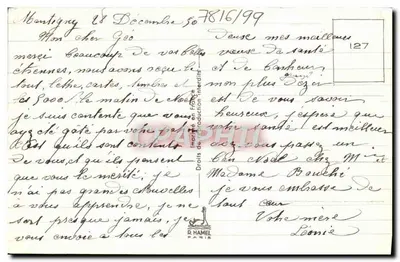 Montigny 28 Décembre 50
7816/99
Mon cher Géo
merci beaucoup de vos belles
étrennes, nous avons reçu le
tout, lettre, cartes, timbres et
les 5000 le matin de Noel
je suis contente que vous
ayez été gâté par votre patron
c'est qu'ils sont contents
de vous, et qu'ils pensent
que vous le mérité, je
n'ai pas grandes nouvelles
à vous apprendre, je ne
sort presque jamais, je
vous envoie à tous les
deux mes meilleurs
voeux de santé
et de bonheur
mon plus
est de vous savoir
heureux, j'espère que
votre santé est meilleur
avez vous passez un
bon Noel chez Mr et
Madame
je vous embrasse de
tout coeur
Votre mère
Léonie
127
Droits de reproduction interdits
D. HAMEL
PARIS